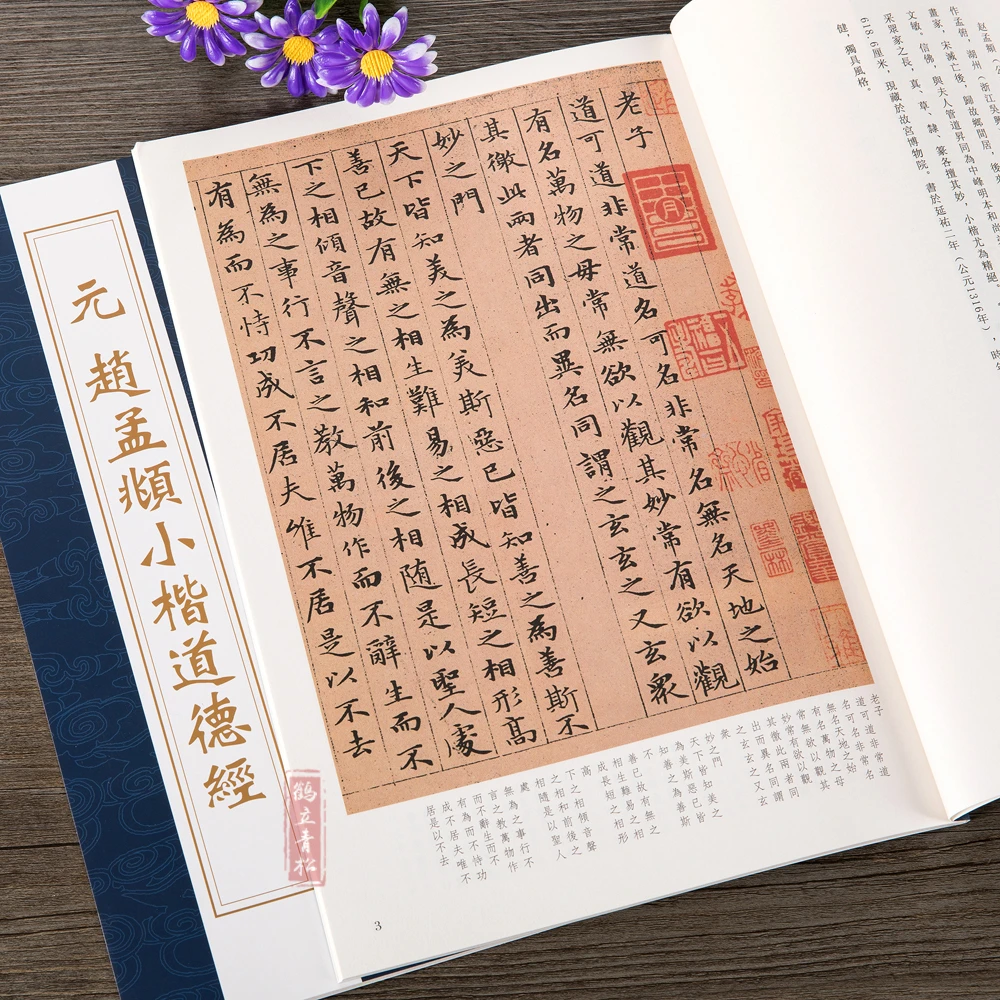 元 趙孟頫小楷道德經
作孟俯，湖州（浙江吳興
畫家，宋滅亡後，歸故鄉閒居，後
文敏。信佛，與夫人管道昇同為中峰明本和尚
采眾家之長，真、草、隸、篆各擅其妙，小楷尤為精絕。
618.6厘米，現藏於故宮博物院。書於延祐二年（公元1316年），時年
健，獨具風格。
老子
道可道非常道名可名非常名無名天地之始
有名萬物之母常無欲以觀其妙常有欲以觀
其徼此兩者同出而異名同謂之玄玄之又玄衆
妙之門
天下皆知美之為美斯惡已皆知善之為善斯不
善已故有無之相生難易之相成長短之相形高
下之相傾音聲之相和前後之相随是以聖人處
無為之事行不言之教萬物作而不辭生而不
有為而不恃功成不居夫唯不居是以不去
老子
道可道非常道
名可名非常名
無名天地之始
有名萬物之母
常無欲以觀其
妙常有欲以觀
其徼此兩者同
出而異名同謂
之玄玄之又玄
衆
妙之門
天下皆知美之
為美斯惡已皆
知善之為善斯
不
善已故有無之
相生難易之相
成長短之相形
高
下之相傾音聲
之相和前後之
相隨是以聖人
處
無為之事行不
言之教萬物作
而不辭生而不
有為而不恃功
成不居夫唯不
居是以不去
3
鶴立青松